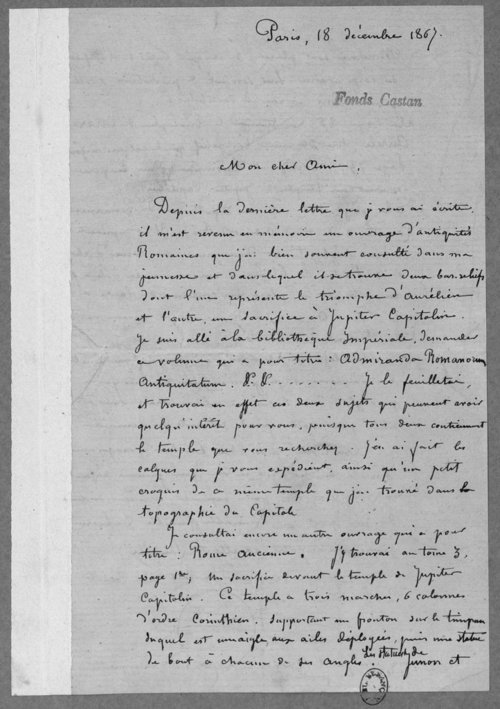 Paris, 18 décembre 1867.
Fonds Castan
Mon cher Ami,
Depuis la dernière lettre que je vous ai écrite,
il m'est revenu en mémoire un ouvrage d'antiquités
Romaines que j'ai bien souvent consulté dans ma
jeunesse et dans lequel il se trouve deux bas-reliefs
dont l'un représente le triomphe d'Aurélien
et l'autre, un sacrifice à Jupiter Capitolin.
Je suis allé à la bibliothèque Impériale, demander
ce volume qui a pour titre : Admiranda Romanorum
Antiquitatum. &. &. ....... Je le feuilletai,
et trouvai en effet ces deux sujets qui peuvent avoir
quelqu'intérêt pour vous, puisque tous deux contiennent
le temple que vous recherchez. J'en ai fait les
calques que je vous expédient, ainsi qu'un petit
croquis de ce même temple que j'ai trouvé dans la
topographie du Capitole
Je consultai encore un autre ouvrage qui a pour
titre : Rome ancienne. J'y trouvai au tome 3,
page 1re, Un sacrifice devant le temple de Jupiter
Capitolin. Ce temple a trois marches, 6 colonnes
d'ordre Corinthien, supportant un fronton sur le timpan
duquel est un aigle aux ailes déployées, puis une statue
de bout à chacun de ses angles. Les statues de
Junon et